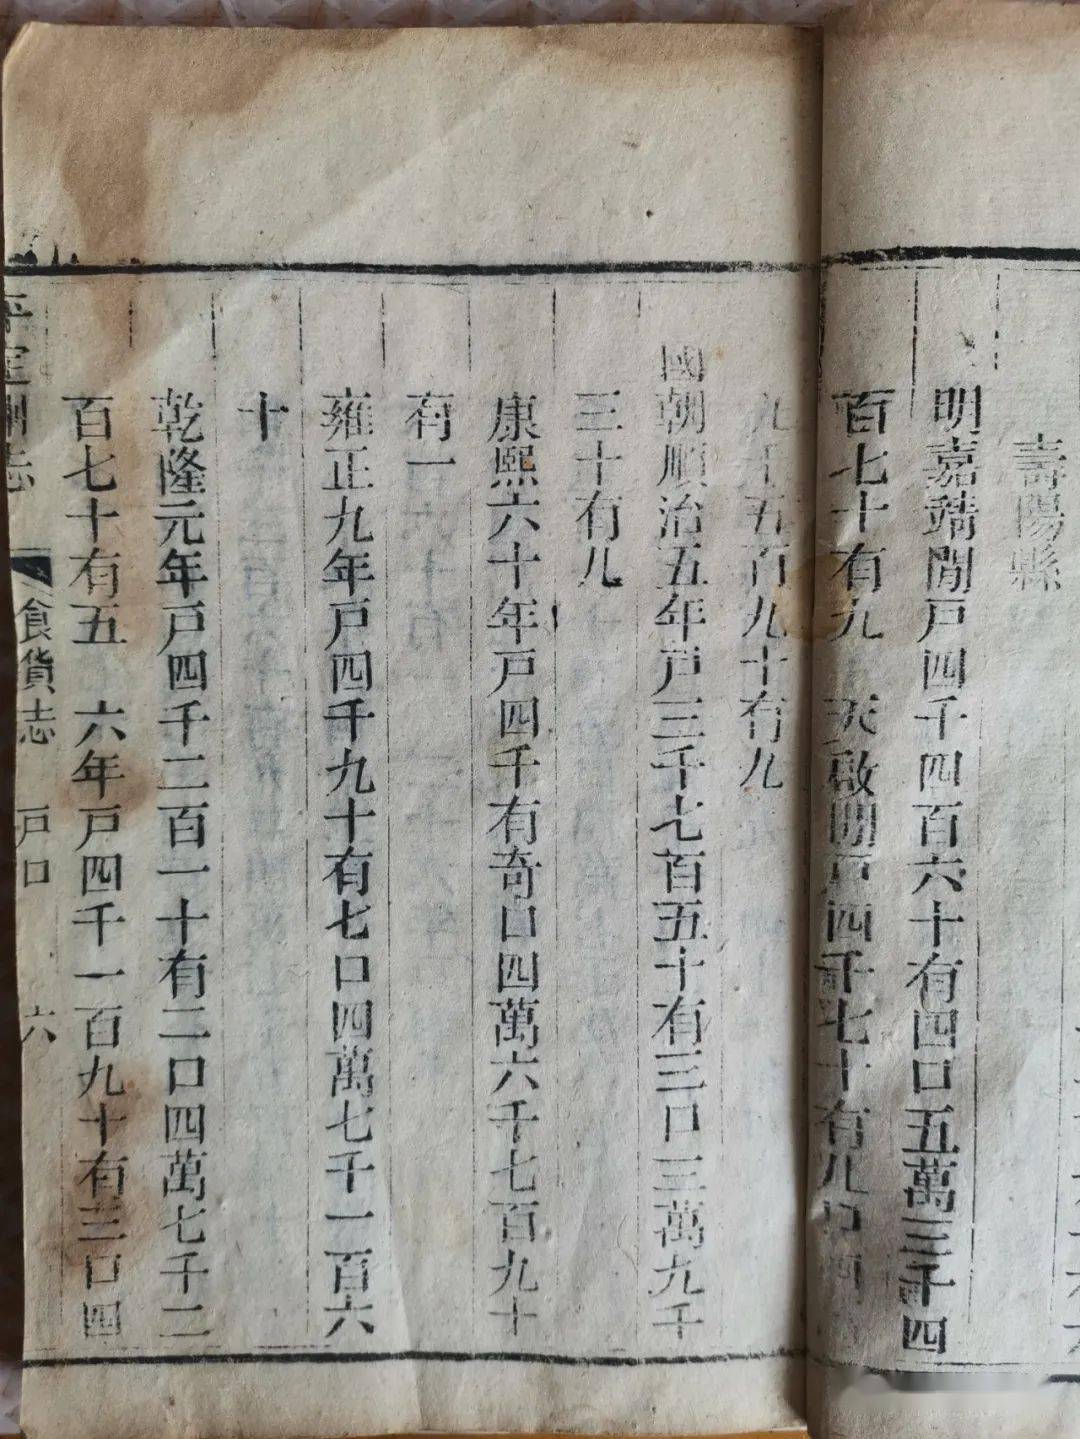 壽陽縣
明嘉靖間戸四千四百六十有四口五萬三千四
百七十有九 天啟間戸四千七十有八口四
九千五百九十有九
國朝順治五年戸三千七百五十有三口三萬九千
三十有八
康熙六十年戸四千有奇口四萬六千七百九十
有一
雍正九年戸四千九十有七口四萬七千一百六
十
乾隆元年戸四千二百一十有二口四萬七千二
百七十有五 六年戸四千一百九十有三口四
平定州志 食貨志 戸口 六